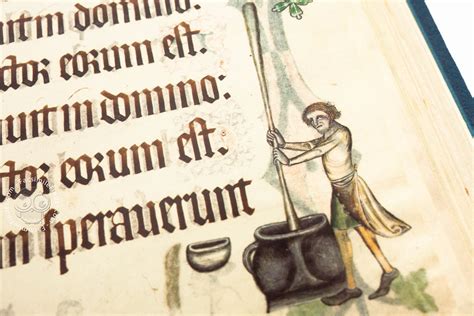 uit in domino:
ctor eorum est:
uit in domino:
ctor eorum est:
m sperauerunt